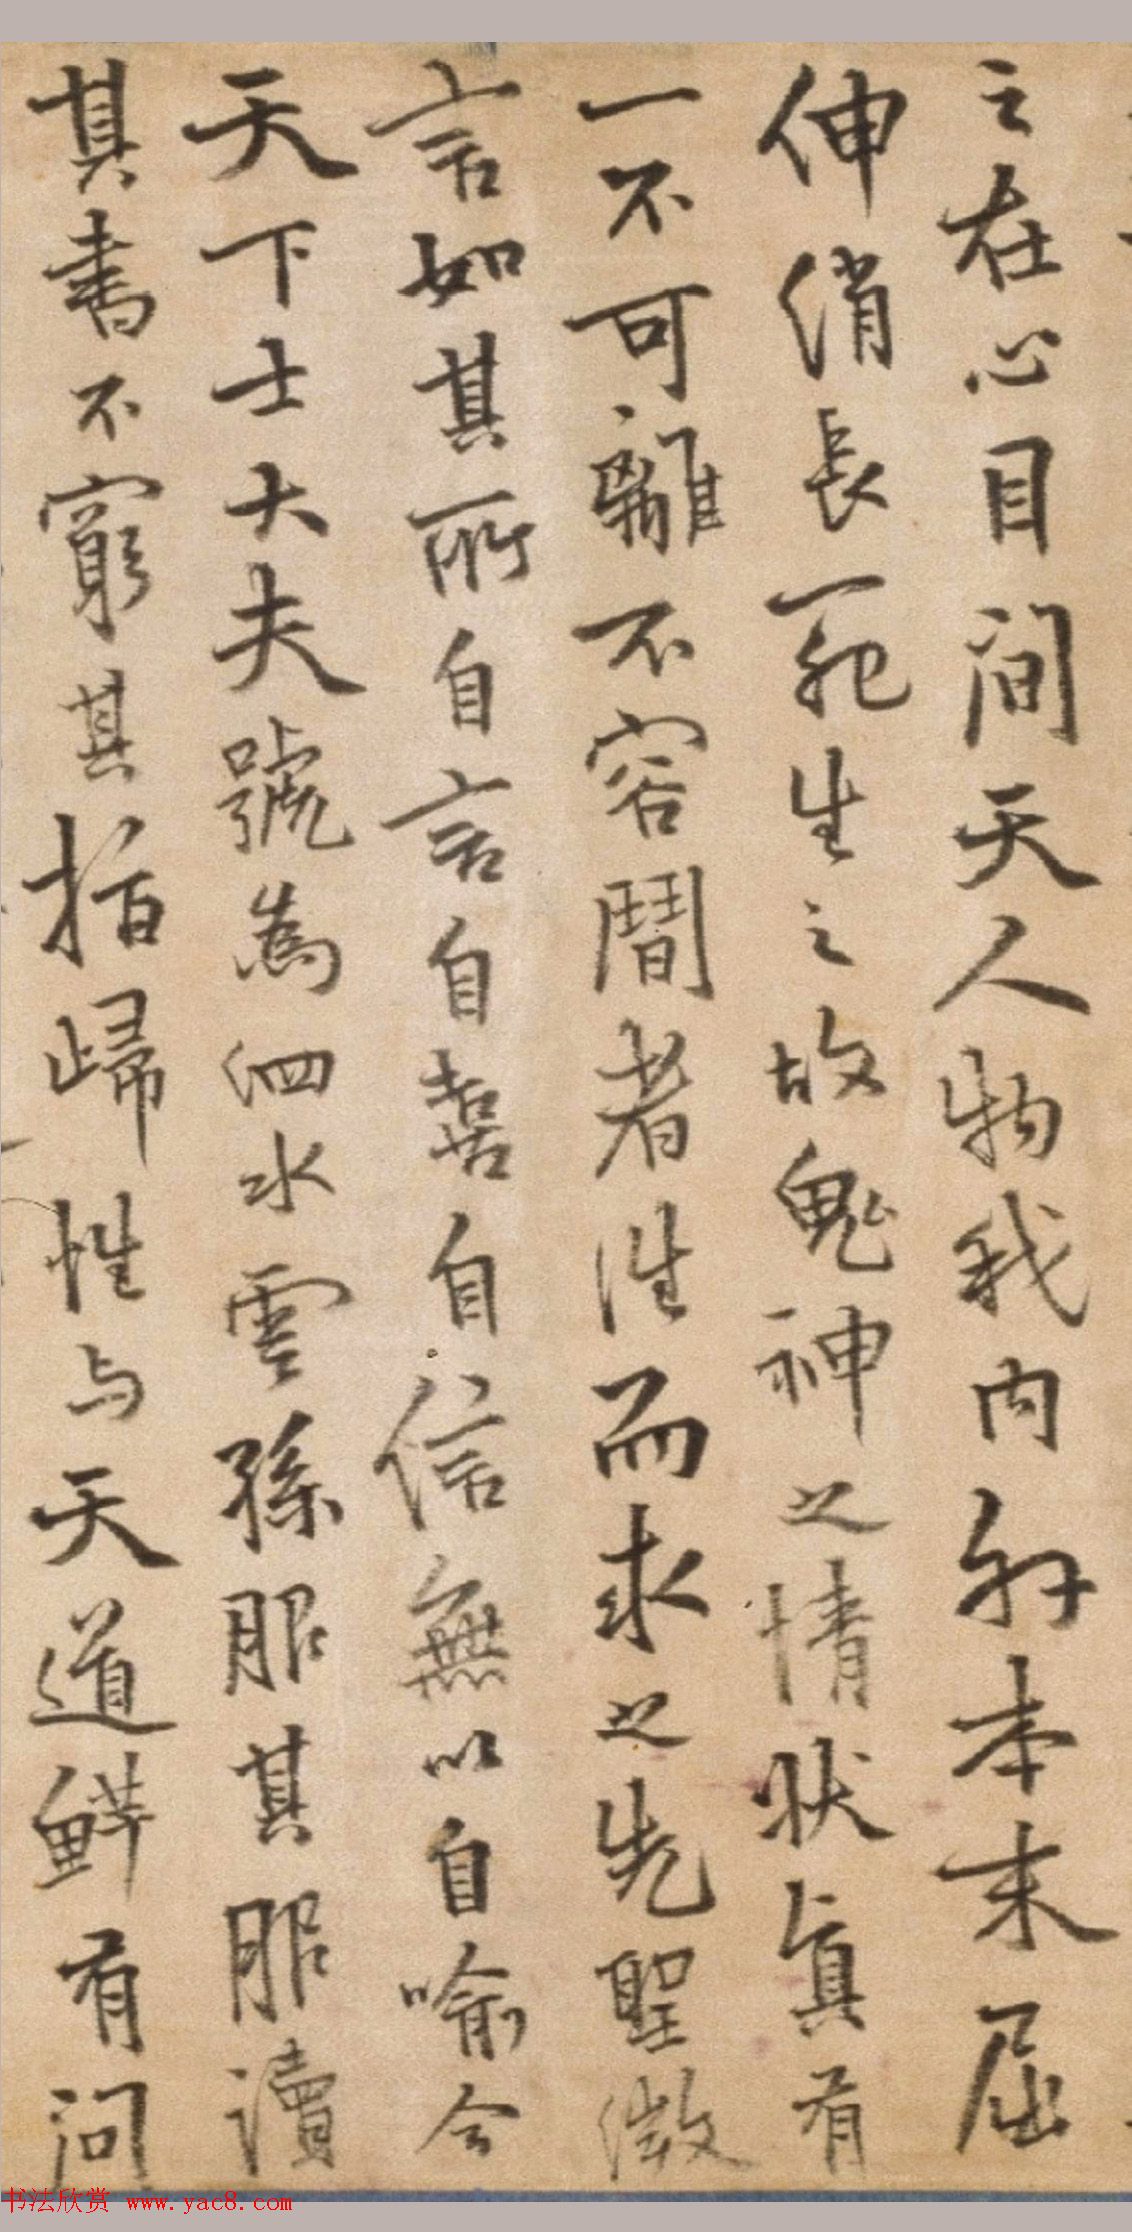 之在心目間天人物我内外本末屈
伸消長死生之故鬼神之情狀真有
一不可離不容間者往而求之先聖微
言如其所自言自喜自信無以自喻今
天下士大夫號為泗水雲孫服其服讀
其書不窮其指歸性与天道鮮有問
书法欣赏 www.yac8.com